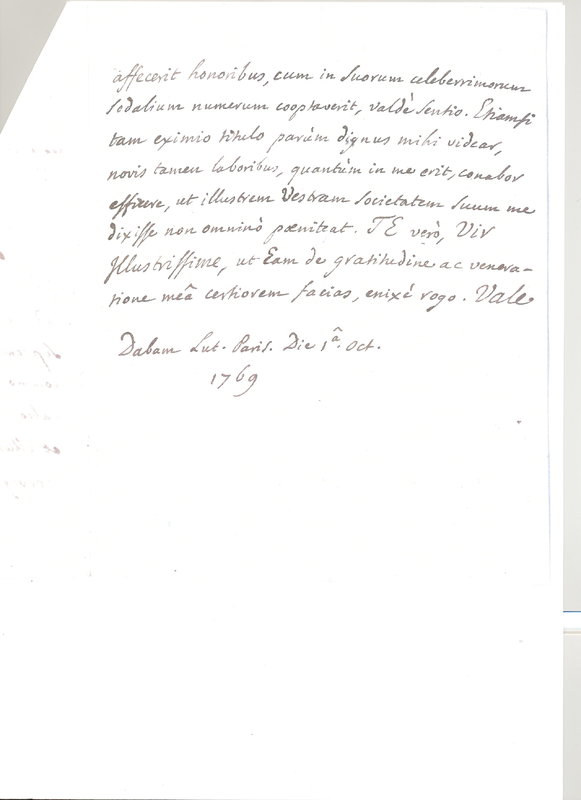 affecerit honoribus, cum in suorum celeberrimorum
sodalium numerum cooptaverit, valdè sentio. Etiamsi
tam eximio titulo parùm dignus mihi videar,
novis tamen laboribus, quantùm in me erit, conabor
efficere, ut illustrem Vestram societatem suum me
dixisse non omninò pœniteat. TE verò, Vir
Jllustrissime, ut Eam de gratitudine ac venera-
tione meâ certiorem facias, enixé rogo. Vale
Dabam Lut. Paris. Die 1.â Oct.
1769